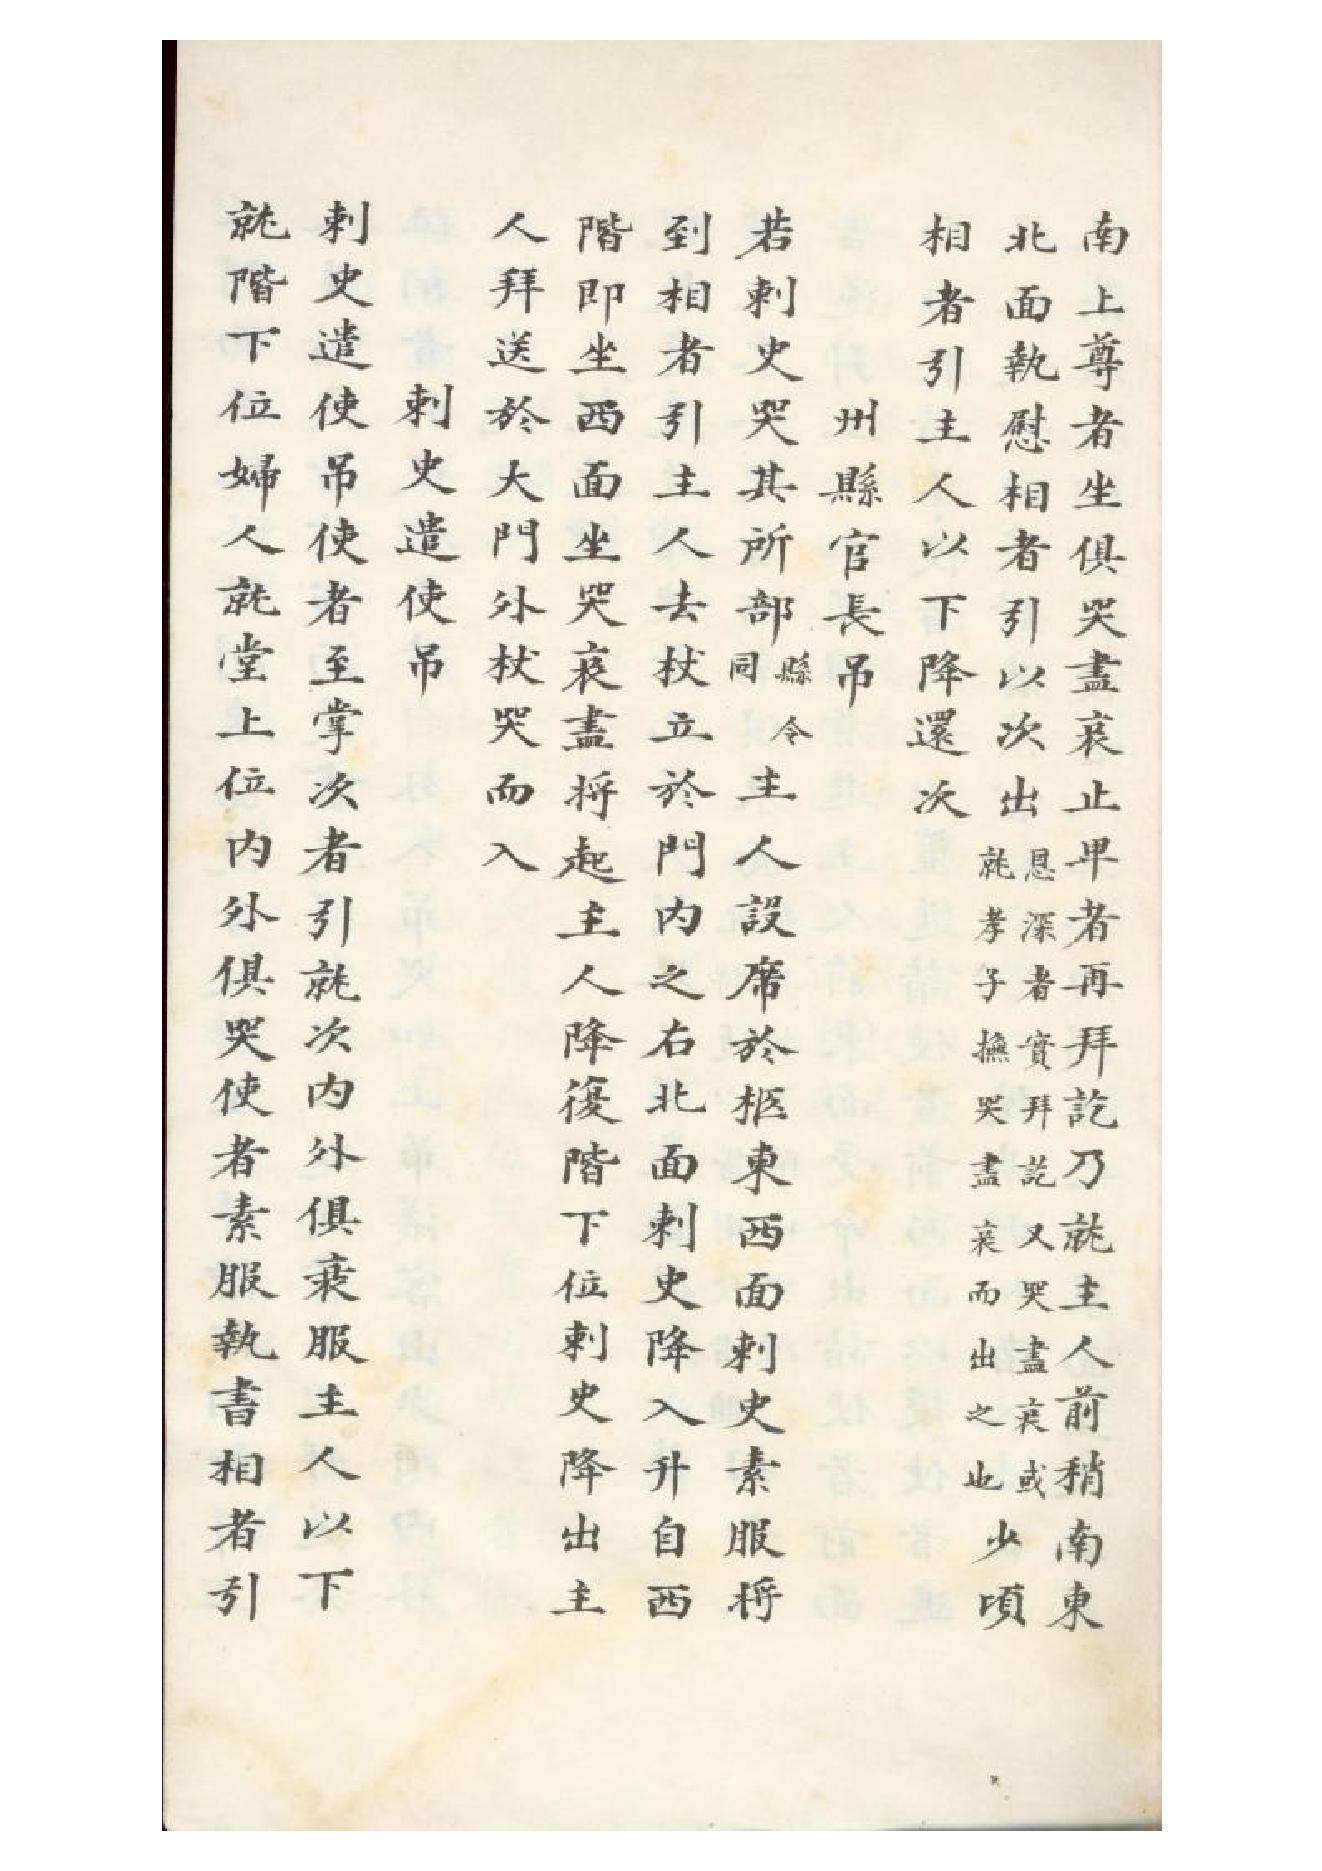 南上尊者坐俱哭盡哀止卑者再拜訖乃就主人前稍南東
北面執慰相者引以次出恩深者實拜訖又哭盡哀或就孝子撫哭盡哀而出之也少頃
相者引主人以下降還次
州縣官長吊
若刺史哭其所部縣令同主人設席於柩東西面刺史素服將
到相者引主人去杖立於門內之右北面刺史降入升自西
階即坐西面坐哭哀盡將起主人降復階下位刺史降出主
人拜送於大門外杖哭而入
刺史遣使吊
刺史遣使吊使者至掌次者引就次內外俱衰服主人以下
就階下位婦人就堂上位內外俱哭使者素服執書相者引